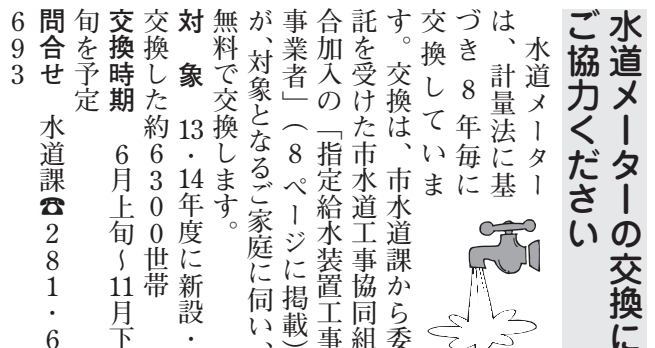 水道メーターの交換に
ご協力ください
水道メーター
は、計量法に基
づき8年毎に
交換していま
す。交換は、市水道課から委
託を受けた市水道工事協同組
合加入の「指定給水装置工事
事業者」(8ページに掲載)
が、対象となるご家庭に伺い、
無料で交換します。
対　象　13・14年度に新設・
交換した約6300世帯
交換時期　6月上旬~11月下
旬を予定
問合せ　水道課☎281・6
693